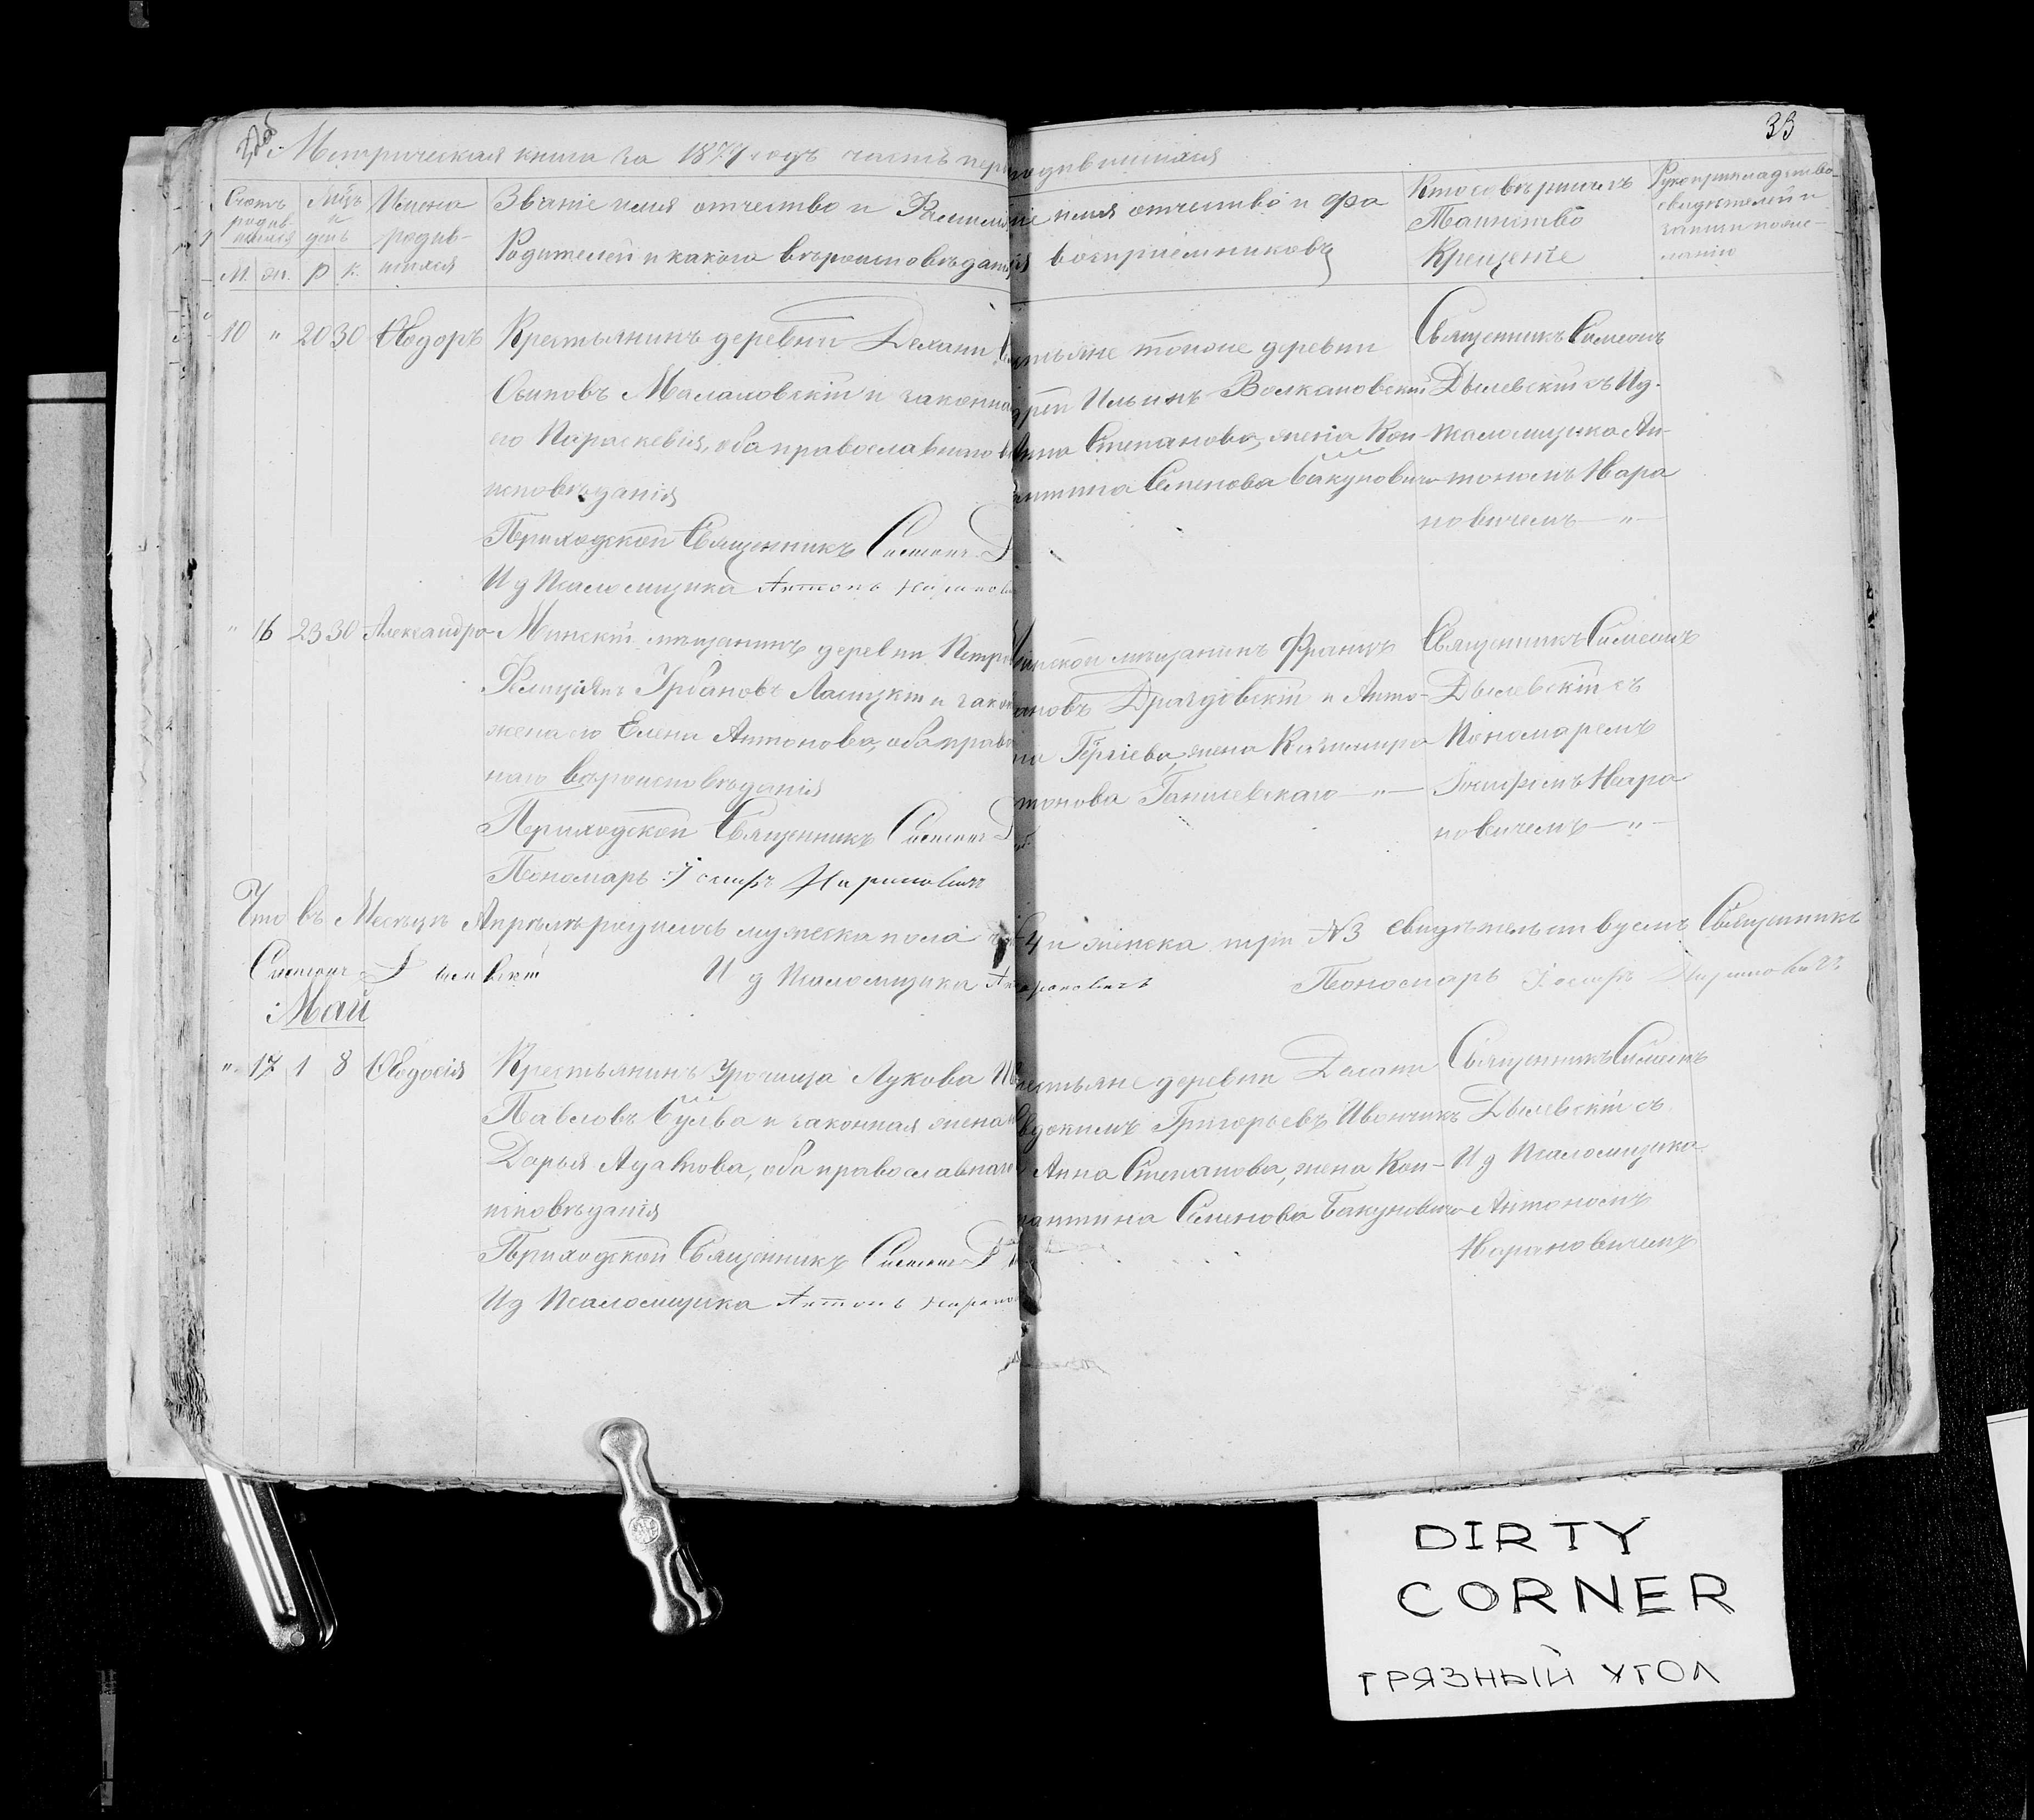 33
Метрическая книга за 1879 годъ часть пер
родившихся
Счетъ родив-шихся
М. ж.
Мѣсяцъ и день
Р К.
Имена родив-шихся
Званіе имя отчество и Фамилія
Родителей и какого вѣроисповѣданія
имя отчество и фа
воспріемниковъ
Кто совершилъ
Таинство
Крещенія
Рукоприкладство
свидѣтелей
записи по же-
ланію
10 " 20 30 Ѳеодоръ
Крестьянинъ деревни
Осиповъ Малаховскій и законна
его Параскевія, оба православнаго
исповѣданія
Приходской Священникъ Симеонъ
И д Псаломщика Антонъ
тьяне тоже деревни
Ильинъ Волкановскій
Степанова, жена Кон-
Семенова Бакуновича
Священникъ Симеонъ
Дылевскій съ И д.
Псаломщика Ан-
тономъ Нара
новичемъ — " —
" 16 23 30 Александра
Минскій мѣщанинъ деревни Петр
Фелиціянъ Урбановъ Лашуцкій и закон
жена его Елена Антонова, оба право
наго вѣроисповѣданія
Приходской Священникъ Симеонъ
Пономарь Іосифъ Нарановичъ
инской мѣщанинъ Францъ
ановъ Драгдовскій и Анто-
на Гургіева, жена Казимира
тонова — " —
Священникъ Симеонъ
Дылевскій съ
Пономаремъ
Іосифомъ Нара
новичемъ — " —
Что въ Месяцѣ Апрѣлѣ родилось мужеска пола
4 и женска три № 3 свидѣтельствуемъ Священникъ
Симеонъ Дылевскій И д Псаломщика
Пономарь Іосифъ Нарановичъ
Май
" 17 1 8 Ѳеодосія
Крестьянинъ Урочища Лукова
Павловъ Бульва и законная жена
Дарья, оба православнаго
исповѣданія
Приходской Священникъ Симеонъ
И д Псаломщика Антонъ
естьяне деревни
вдокимъ Григорьевъ Ивончикъ
Анна Степанова, жена Кон-
тантина Семенова Бакуновича
Священникъ Симеонъ
Дылевскій съ
И д Псаломщика
Антономъ
Нарановичемъ
DIRTY
CORNER
ГРЯЗНЫЙ УГОЛ